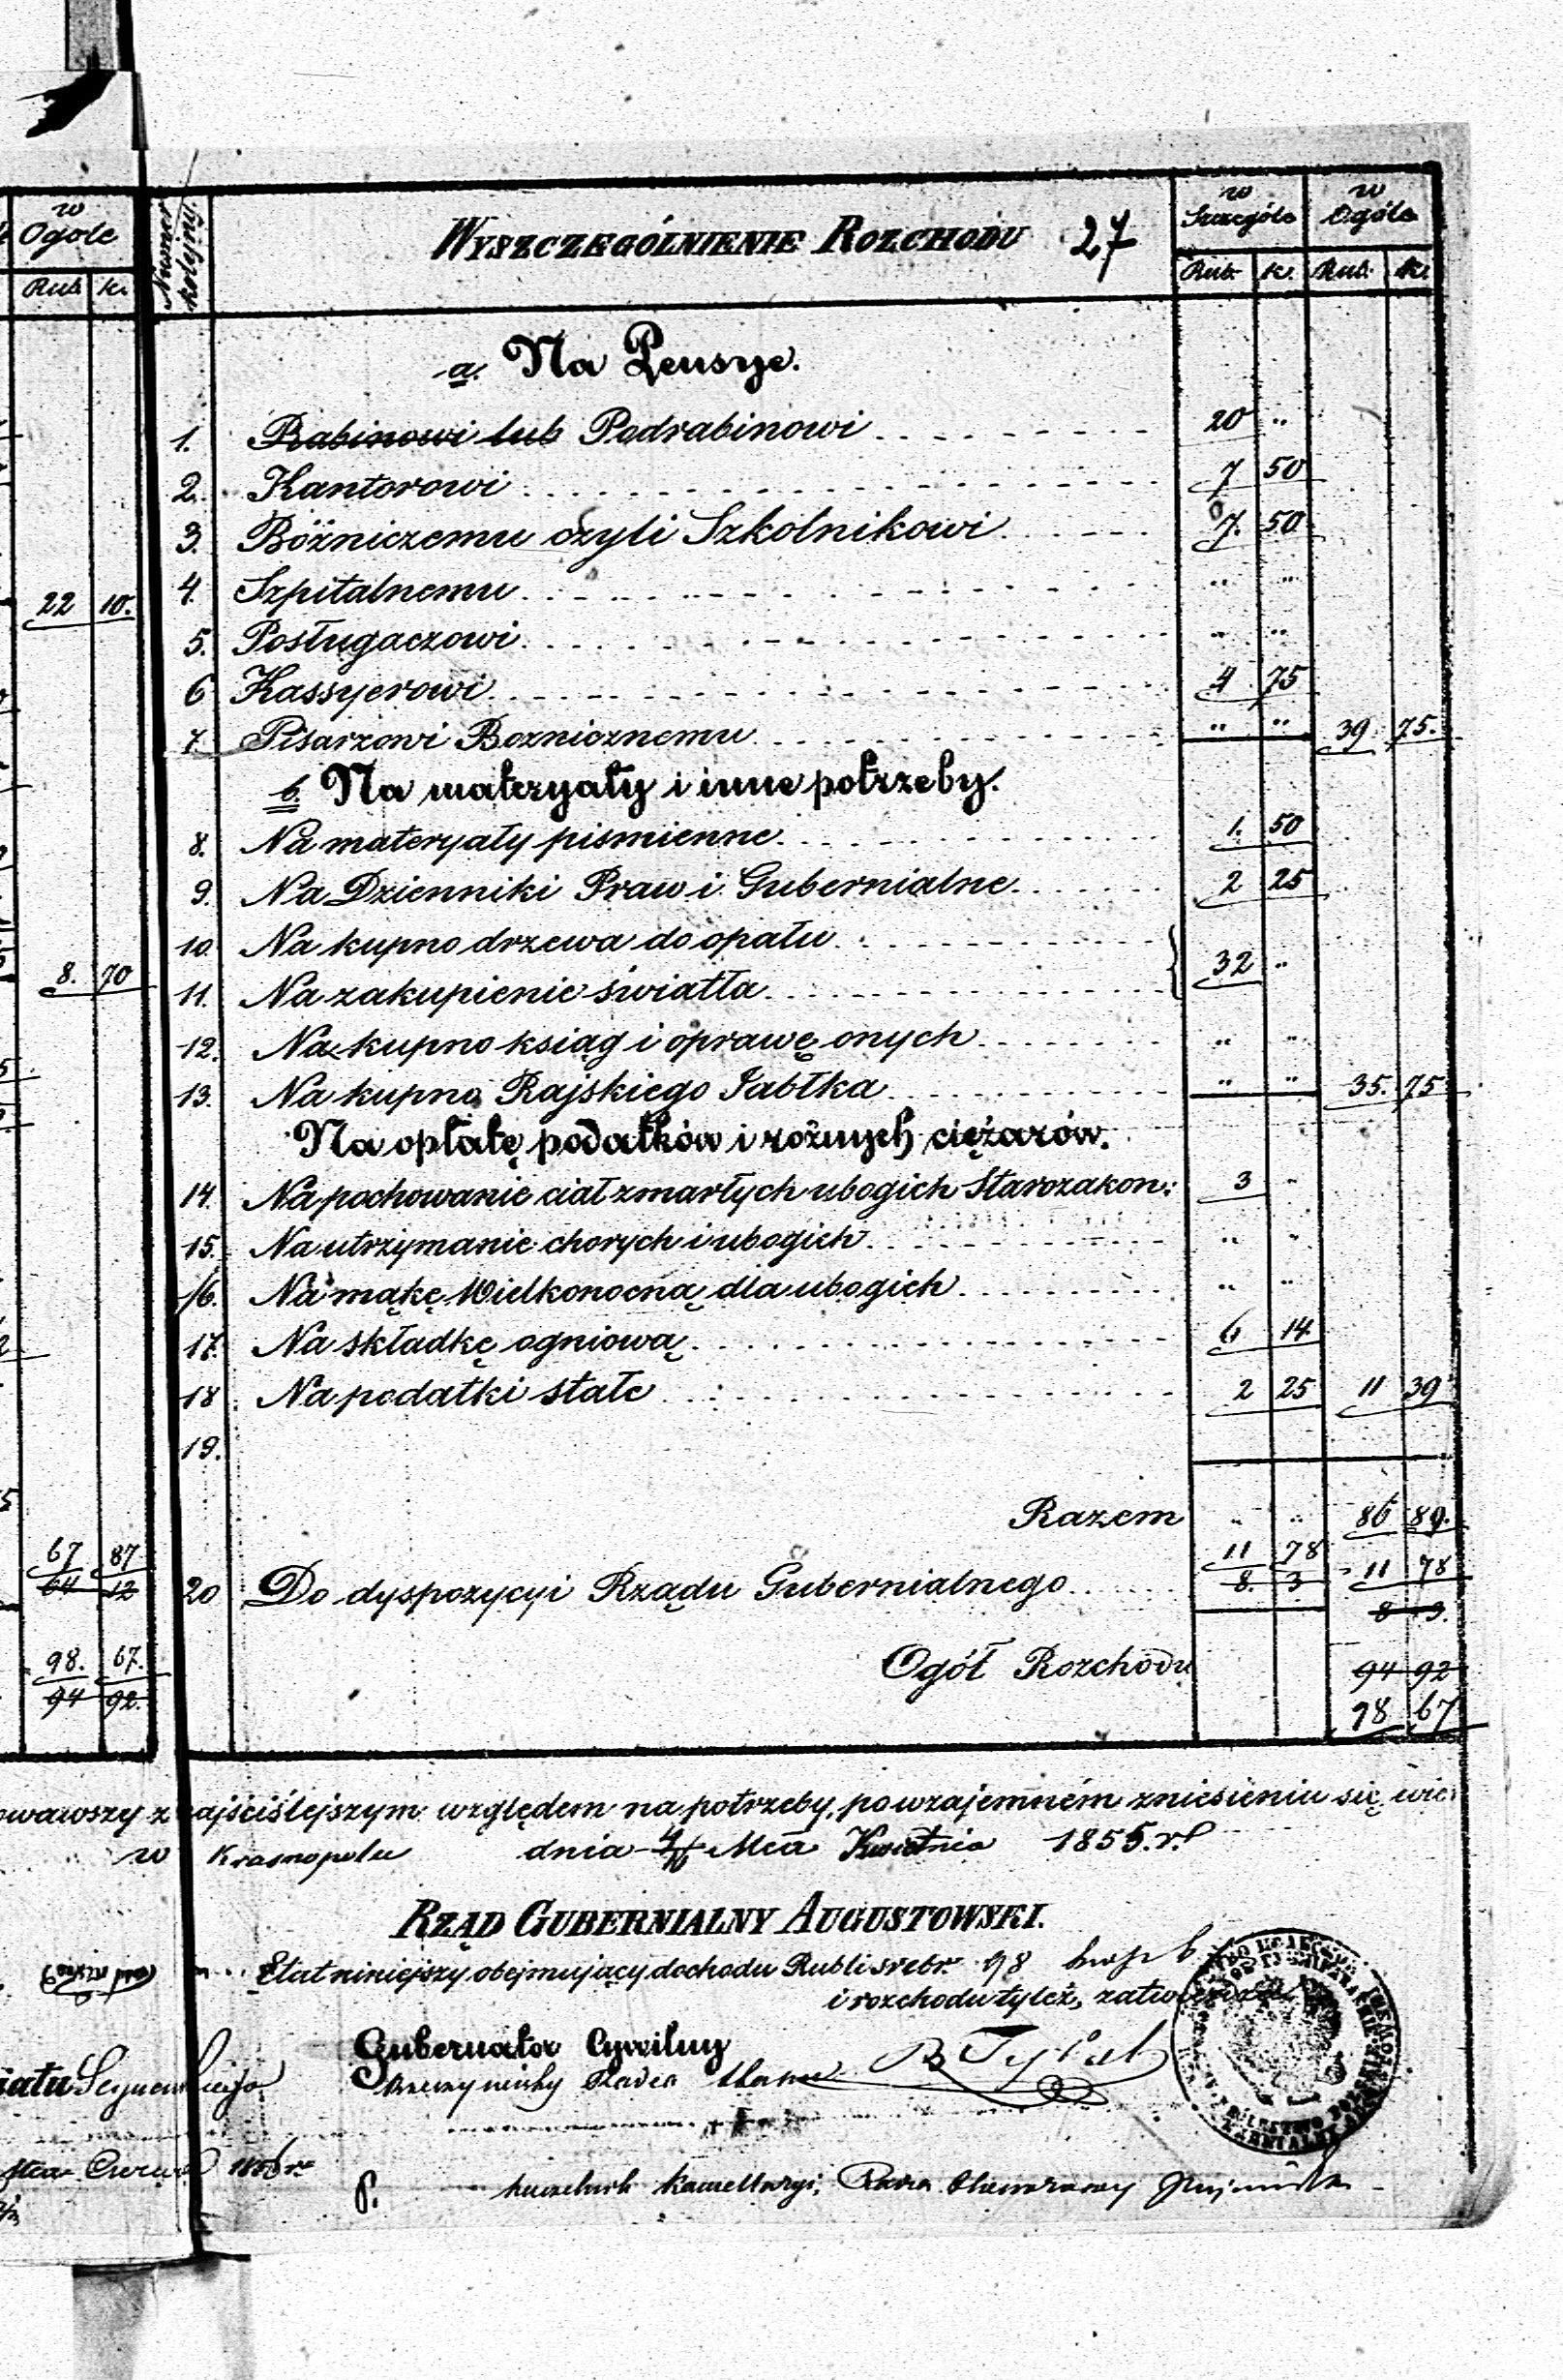 w Ogóle
Rub. k.
22 10.
8. 70
67 87
64 12
98. 67.
94 92.
Numer kolejny.
WYSZCZEGÓLNIENIE ROZCHODU 27
w Szczególe
w Ogóle
Rub. k. Rub. k.
a. Na Pensye.
1. Rabinowi lub Podrabinowi 20 ..
2. Kantorowi 7 50
3. Bóżniczemu czyli Szkolnikowi 7. 50
4. Szpitalnemu .. ..
5. Posługaczowi .. ..
6 Kassyerowi 4 75
7. Pisarzowi Boznicznemu .. .. 39 75.
b. Na materyały i inne potrzeby.
8. Na materyały pismienne 1. 50
9. Na Dzienniki Praw i Gubernialne 2 25
10. Na kupno drzewa do opału
32 ..
11. Na zakupienie światła
12. Na kupno ksiąg i oprawę onych .. ..
13. Na kupno Rajskiego Jabłka .. .. 35. 75
Na opłatę podatków i rożnych ciężarów.
14. Na pochowanie ciał zmarłych ubogich Starozakon: 3 ..
15. Na utrzymanie chorych i ubogich .. ..
16. Na mąkę Wielkonocną dla ubogich .. ..
17. Na składkę ogniową 6 14
18 Na podatki stałe 2 25 11 39
19.
Razem .. .. 86 89.
11 78
20 Do dyspozycyi Rządu Gubernialnego 8. 3 11 78
8 3.
Ogół Rozchodu 94 92
98 67
owawszy z najściślejszym względem na potrzeby, po wzajemném zniesieniu się, wie
w Krasnopolu dnia 4/16 Mca Kwietnia 1855. r.
RZĄD GUBERNIALNY AUGUSTOWSKI.
Etat niniejszy obejmujący dochodu Rubli srebr. 98 kop 67
i rozchodu tyleż, zatwierdza
Gubernator Cywilny
Rzeczywisty Radca Stanu
Mca Czerwca 1856 r.
p. Naczelnik Kancellaryi, Radca